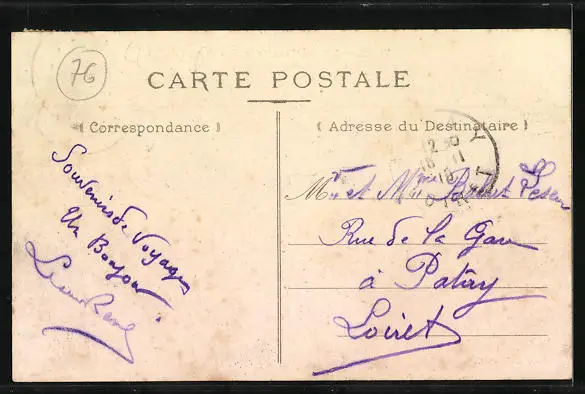 76
CARTE POSTALE
( Correspondance )
( Adresse du Destinataire )
Souvenirs de Voyage
Un Bonjour
Mr et Mme
Rue de la Gare
à Patay
Loiret